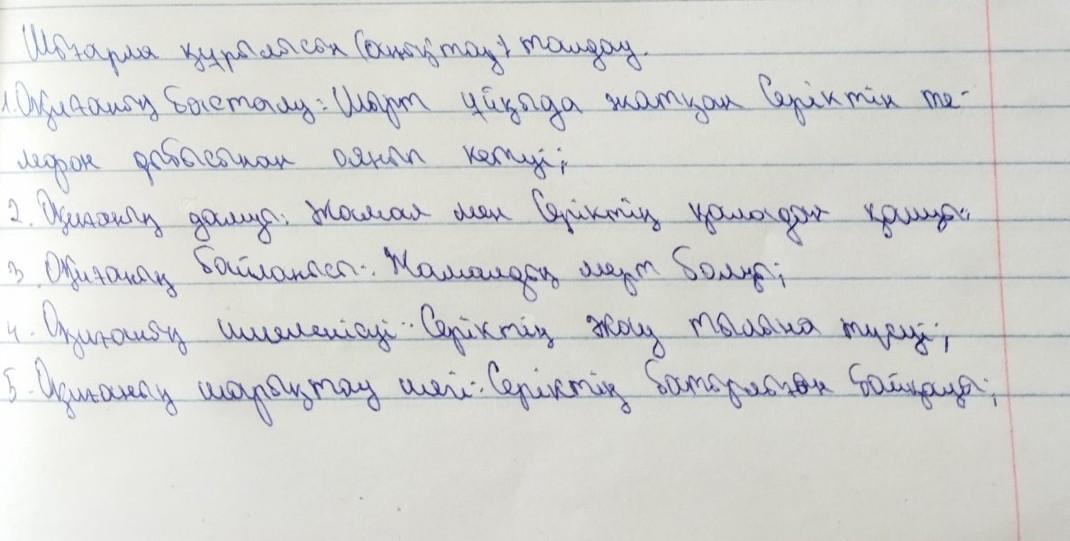 Шығарма құрылысын (анықтау) талдау.
1. Оқиғаның басталу: Шырт ұйқыда жатқан Серіктің те-
лефон дыбысынан оянып кетуі;
2. Оқиғаның дамуы: Жамал мен Серіктің қаладан қашуы:
3. Оқиғаның байланысы: Жамалдың мерт болуы;
4. Оқиғаның шиеленісуі: Серіктің жау тылына түсуі;
5. Оқиғаның шарықтау шегі: Серіктің батырлығын байқауы;